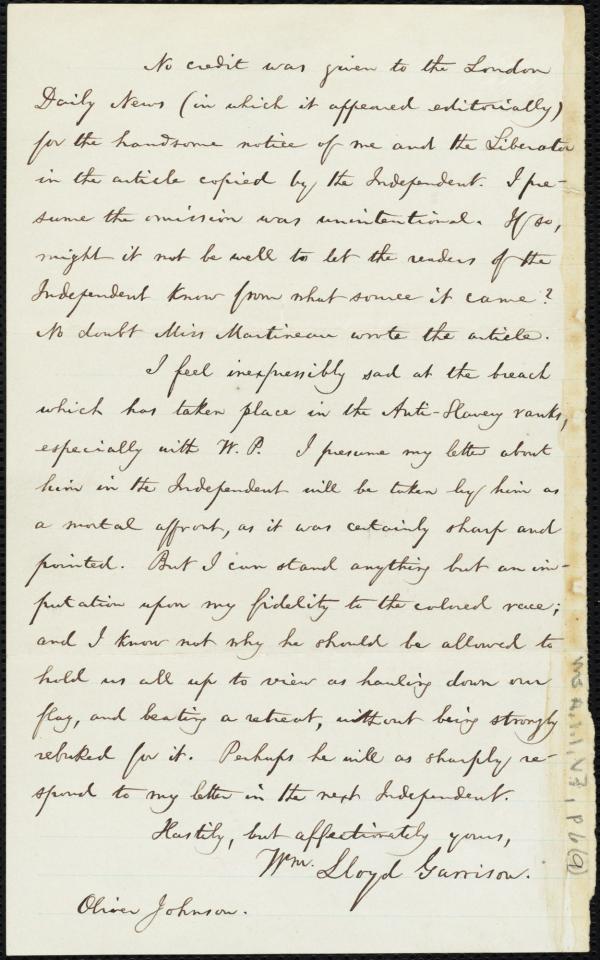 No credit was given to the London
Daily News (in which it appeared editorially)
for the handsome notice of me and the Liberator
in the article copied by the Independent. I pre-
sume the omission was unintentional. If so,
might it not be well to let the readers of the
Independent know from what source it came?
No doubt Miss Martineau wrote the article.
I feel inexpressibly sad at the breach
which has taken place in the Anti-Slavery ranks,
especially with W. P. I presume my letter about
him in the Independent will be taken by him as
a mortal affront, as it was certainly sharp and
pointed. But I can stand anything but an im-
putation upon my fidelity to the colored race;
and I know not why he should be allowed to
hold us all up to view as hauling down our
flag, and beating a retreat, without being strongly
rebuked for it. Perhaps he will as sharply re-
spond to my letter in the next Independent.
Hastily, but affectionately yours,
Wm. Lloyd Garrison.
Oliver Johnson.
Ms A.1.1, v.7, p 61(a)